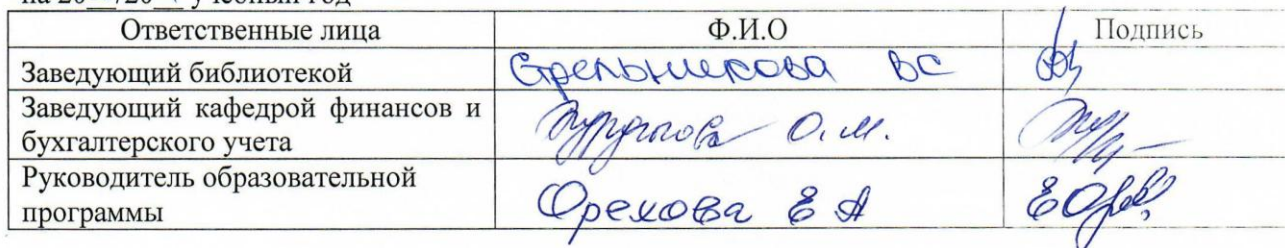 на 20__/20__ учебный год
Ответственные лица Ф.И.О Подпись
Заведующий библиотекой Стрельникова ВС
Заведующий кафедрой финансов и
бухгалтерского учета О.М.
Руководитель образовательной
программы Орехова Е А